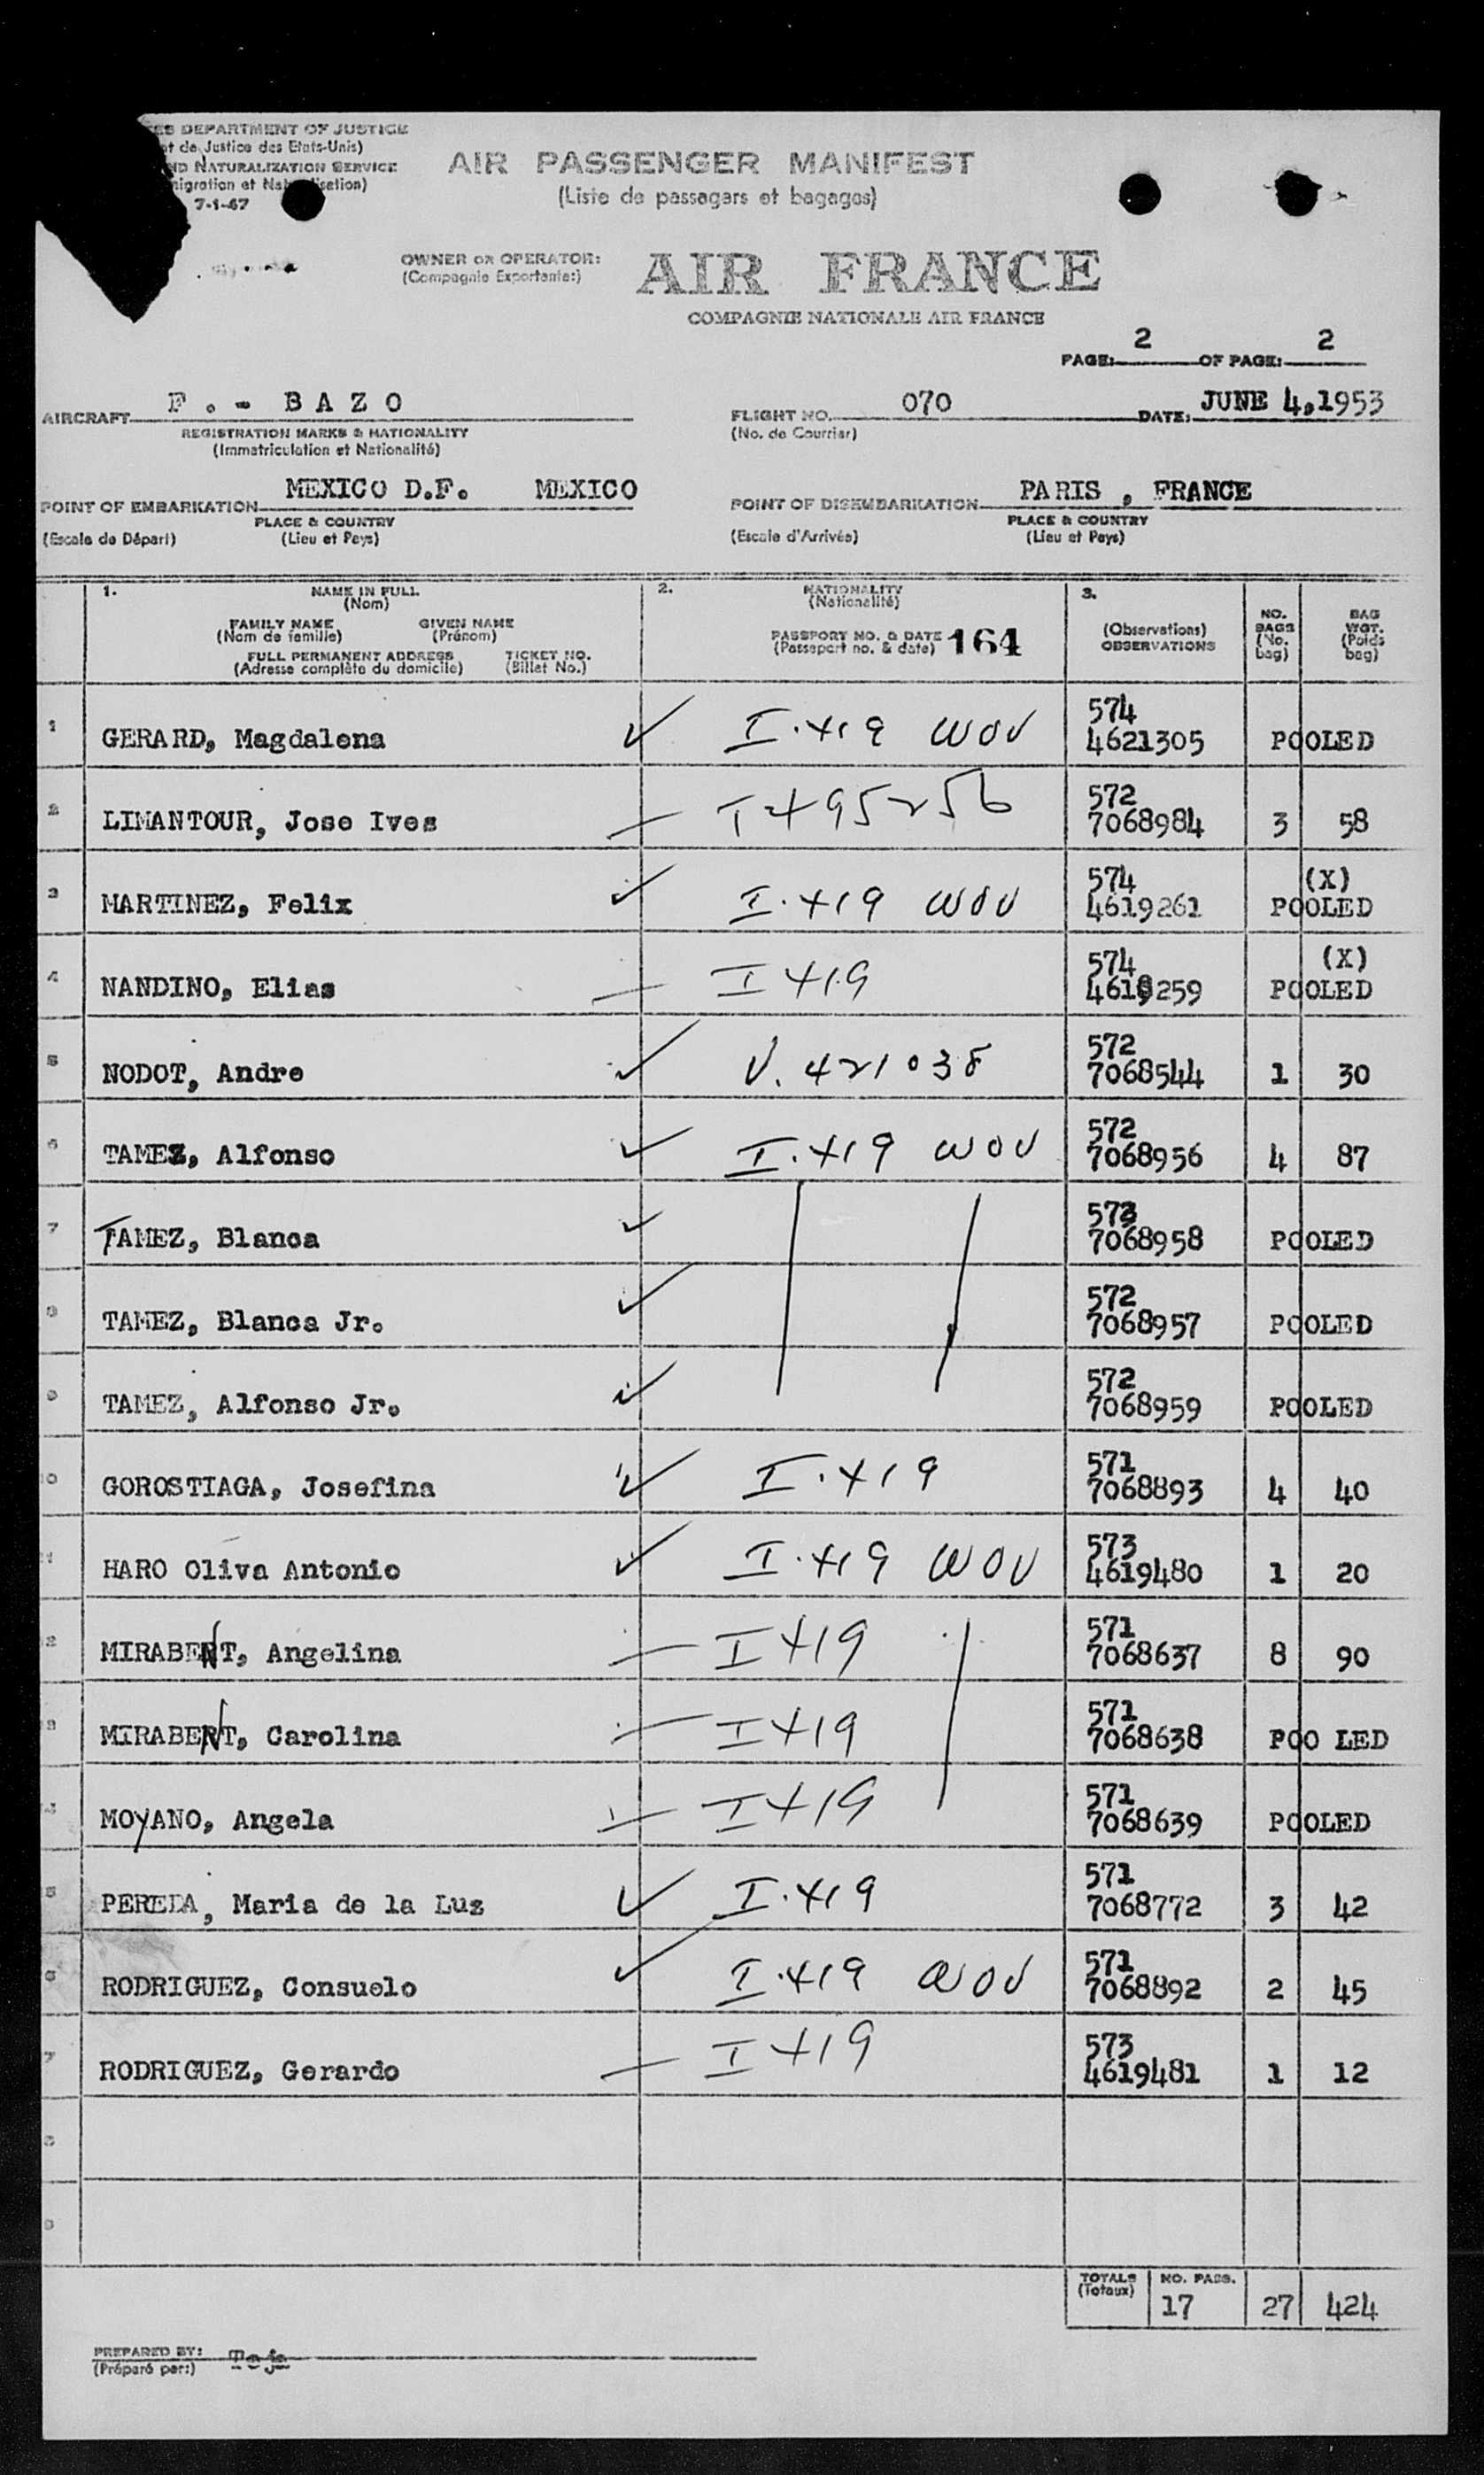 ES DEPARTMENT OF JUSTICE
de Justice des Etats-Unis)
ND NATURALIZATION SERVICE
7-1-47
AIR PASSENGER MANIFEST
(Liste de passagers et bagages)
OWNER OR OPERATOR:
(Compagnie Exportante:)
AIR FRANCE
COMPAGNIE NATIONALE AIR FRANCE
PAGE: 2 OF PAGE: 2
AIRCRAFT F.- BAZO
REGISTRATION MARKS & NATIONALITY
(Immatriculation et Nationalité)
FLIGHT NO. 070
(No. de Courrier)
DATE: JUNE 4,1953
POINT OF EMBARKATION MEXICO D.F. MEXICO
PLACE & COUNTRY
(Escale de Départ) (Lieu et Pays)
POINT OF DISEMBARKATION PARIS , FRANCE
PLACE & COUNTRY
(Escale d'Arrivée) (Lieu et Pays)
1. NAME IN FULL
(Nom)
FAMILY NAME GIVEN NAME
(Nom de famille) (Prénom)
FULL PERMANENT ADDRESS TICKET NO.
(Adresse complète du domicile) (Billet No.)
2. NATIONALITY
(Nationalité)
PASSPORT NO. & DATE
(Passeport no. & date)
164
3.
(Observations)
OBSERVATIONS
NO.
BAGS
(No.
bag)
BAG
WGT.
(Poids
bag)
574
1 GERARD, Magdalena I.419 WOV 4621305 POOLED
572
2 LIMANTOUR, Jose Ives I495256 7068984 3 58
574 (X)
3 MARTINEZ, Felix I.419 WOV 4619261 POOLED
574 (X)
4 NANDINO, Elias I 419 4619259 POOLED
572
5 NODOT, Andre V. 421038 7068544 1 30
572
6 TAMEZ, Alfonso I.419 WOV 7068956 4 87
572
7 TAMEZ, Blanca 7068958 POOLED
572
8 TAMEZ, Blanca Jr. 7068957 POOLED
572
9 TAMEZ, Alfonso Jr. 7068959 POOLED
571
10 GOROSTIAGA, Josefina I.419 7068893 4 40
573
11 HARO Oliva Antonio I.419 WOV 4619480 1 20
571
2 MIRABENT, Angelina I 419 7068637 8 90
571
3 MIRABENT, Carolina I 419 7068638 POO LED
571
4 MOYANO, Angela I 419 7068639 POOLED
571
5 PEREDA, Maria de la Luz I.419 7068772 3 42
571
6 RODRIGUEZ, Consuelo I.419 WOV 7068892 2 45
573
7 RODRIGUEZ, Gerardo I 419 4619481 1 12
8
9
TOTALS NO. PASS.
(Totaux) 17 27 424
PREPARED BY:
(Préparé par:)